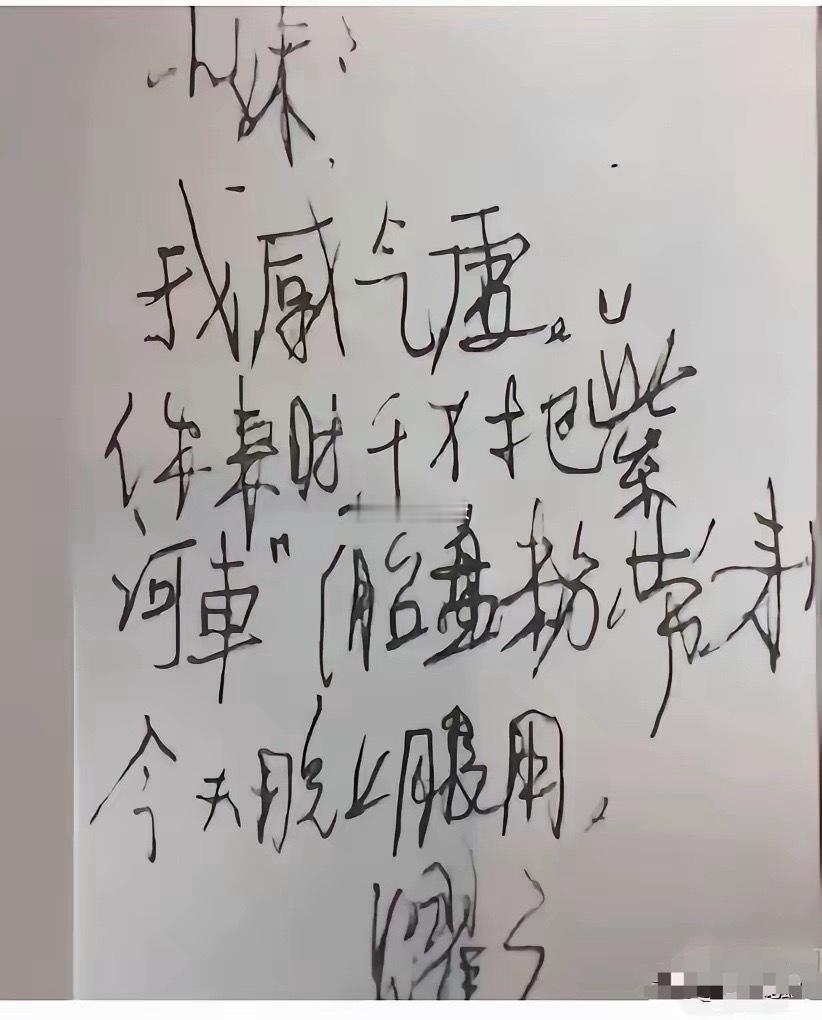 小妹:
我感气虚。
你来时千万把"紫
河車"(胎盘粉)带来
今天晚上服用。